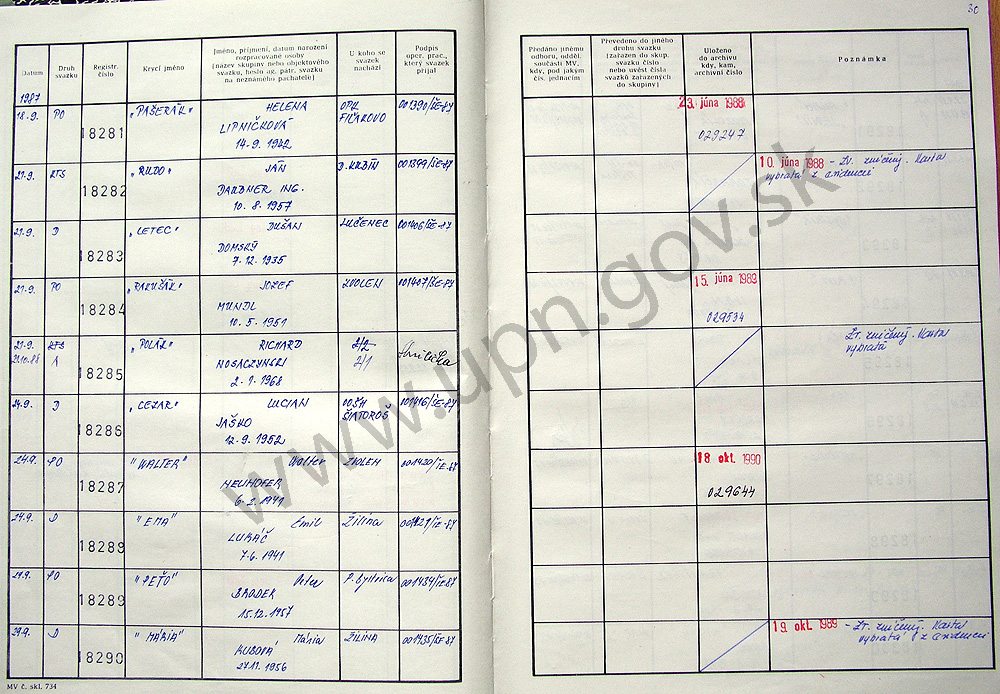 30
Datum
Druh
svazku
Registr.
číslo
Krycí jméno
Jméno, příjmení, datum narození
rozpracované osoby
[název skupiny nebo objektového
svazku, heslo ag. patr. svazku
na neznámého pachatele]
U koho se
svazek
nachází
Podpis
oper. prac.,
který svazek
přijal
Předáno jinému
odboru, odděl.
součásti MV,
kdy, pod jakým
čís. jednacím
Převedeno do jiného
druhu svazku
[zařazen do skup.
svazku číslo
nebo uvést čísla
svazků zařazených
do skupiny]
Uloženo
do archivu
kdy, kam,
archivní číslo
Poznámka
1987
18.9. PO 18281 „PAŠERÁK" HELENA
LIPNIČKOVÁ
14.9.1942
OPK
FIĽAKOVO
001390/ŠE-87
23. júna 1988
029247
21.9. KTS 18282 „RUDO" JÁN
DAUBNER ING.
10.8.1957
001399/ŠE-87
10. júna 1988 - Zv. zničený. Karta
vybratá z evidencii
21.9. D 18283 „LETEC" DUŠAN
DOMSKÝ
7.12.1935
LUČENEC
001406/ŠE-87
21.9. PO 18284 „RAKUŠÁK" JOZEF
MUNDL
10.5.1951
ZVOLEN
001407/ŠE-87
15. júna 1989
029534
21.9. KTS
A
18285 „POLÁK" RICHARD
NOSACZYNSKI
2.1.1968
2/2
2/1
Zv. zničený. Karta
vybratá
24.9. D 18286 „CEZAR" LUCIAN
JAŠKO
12.9.1952
OOŠH
ŠIATOROŠ
001416/ŠE-87
24.9. PO 18287 "WALTER" Walter
NEUHOFER
6.2.1941
ZVOLEN
001420/ŠE-87
18. okt. 1990
029644
24.9. D 18288 "EMA" Emil
LUBÁČ
7.6.1941
Žilina
001421/ŠE-87
29.9. PO 18289 "PEŤO" Peter
BRODER
15.12.1957
P. Bystrica
001434/ŠE-87
29.9. D 18290 "MÁRIA" Mária
KUBOVÁ
27.11.1956
ŽILINA
001435/ŠE-87
19. okt. 1989 - Zv. zničený. Karta
vybratá z evidencii
MV č. skl. 734
www.upn.gov.sk